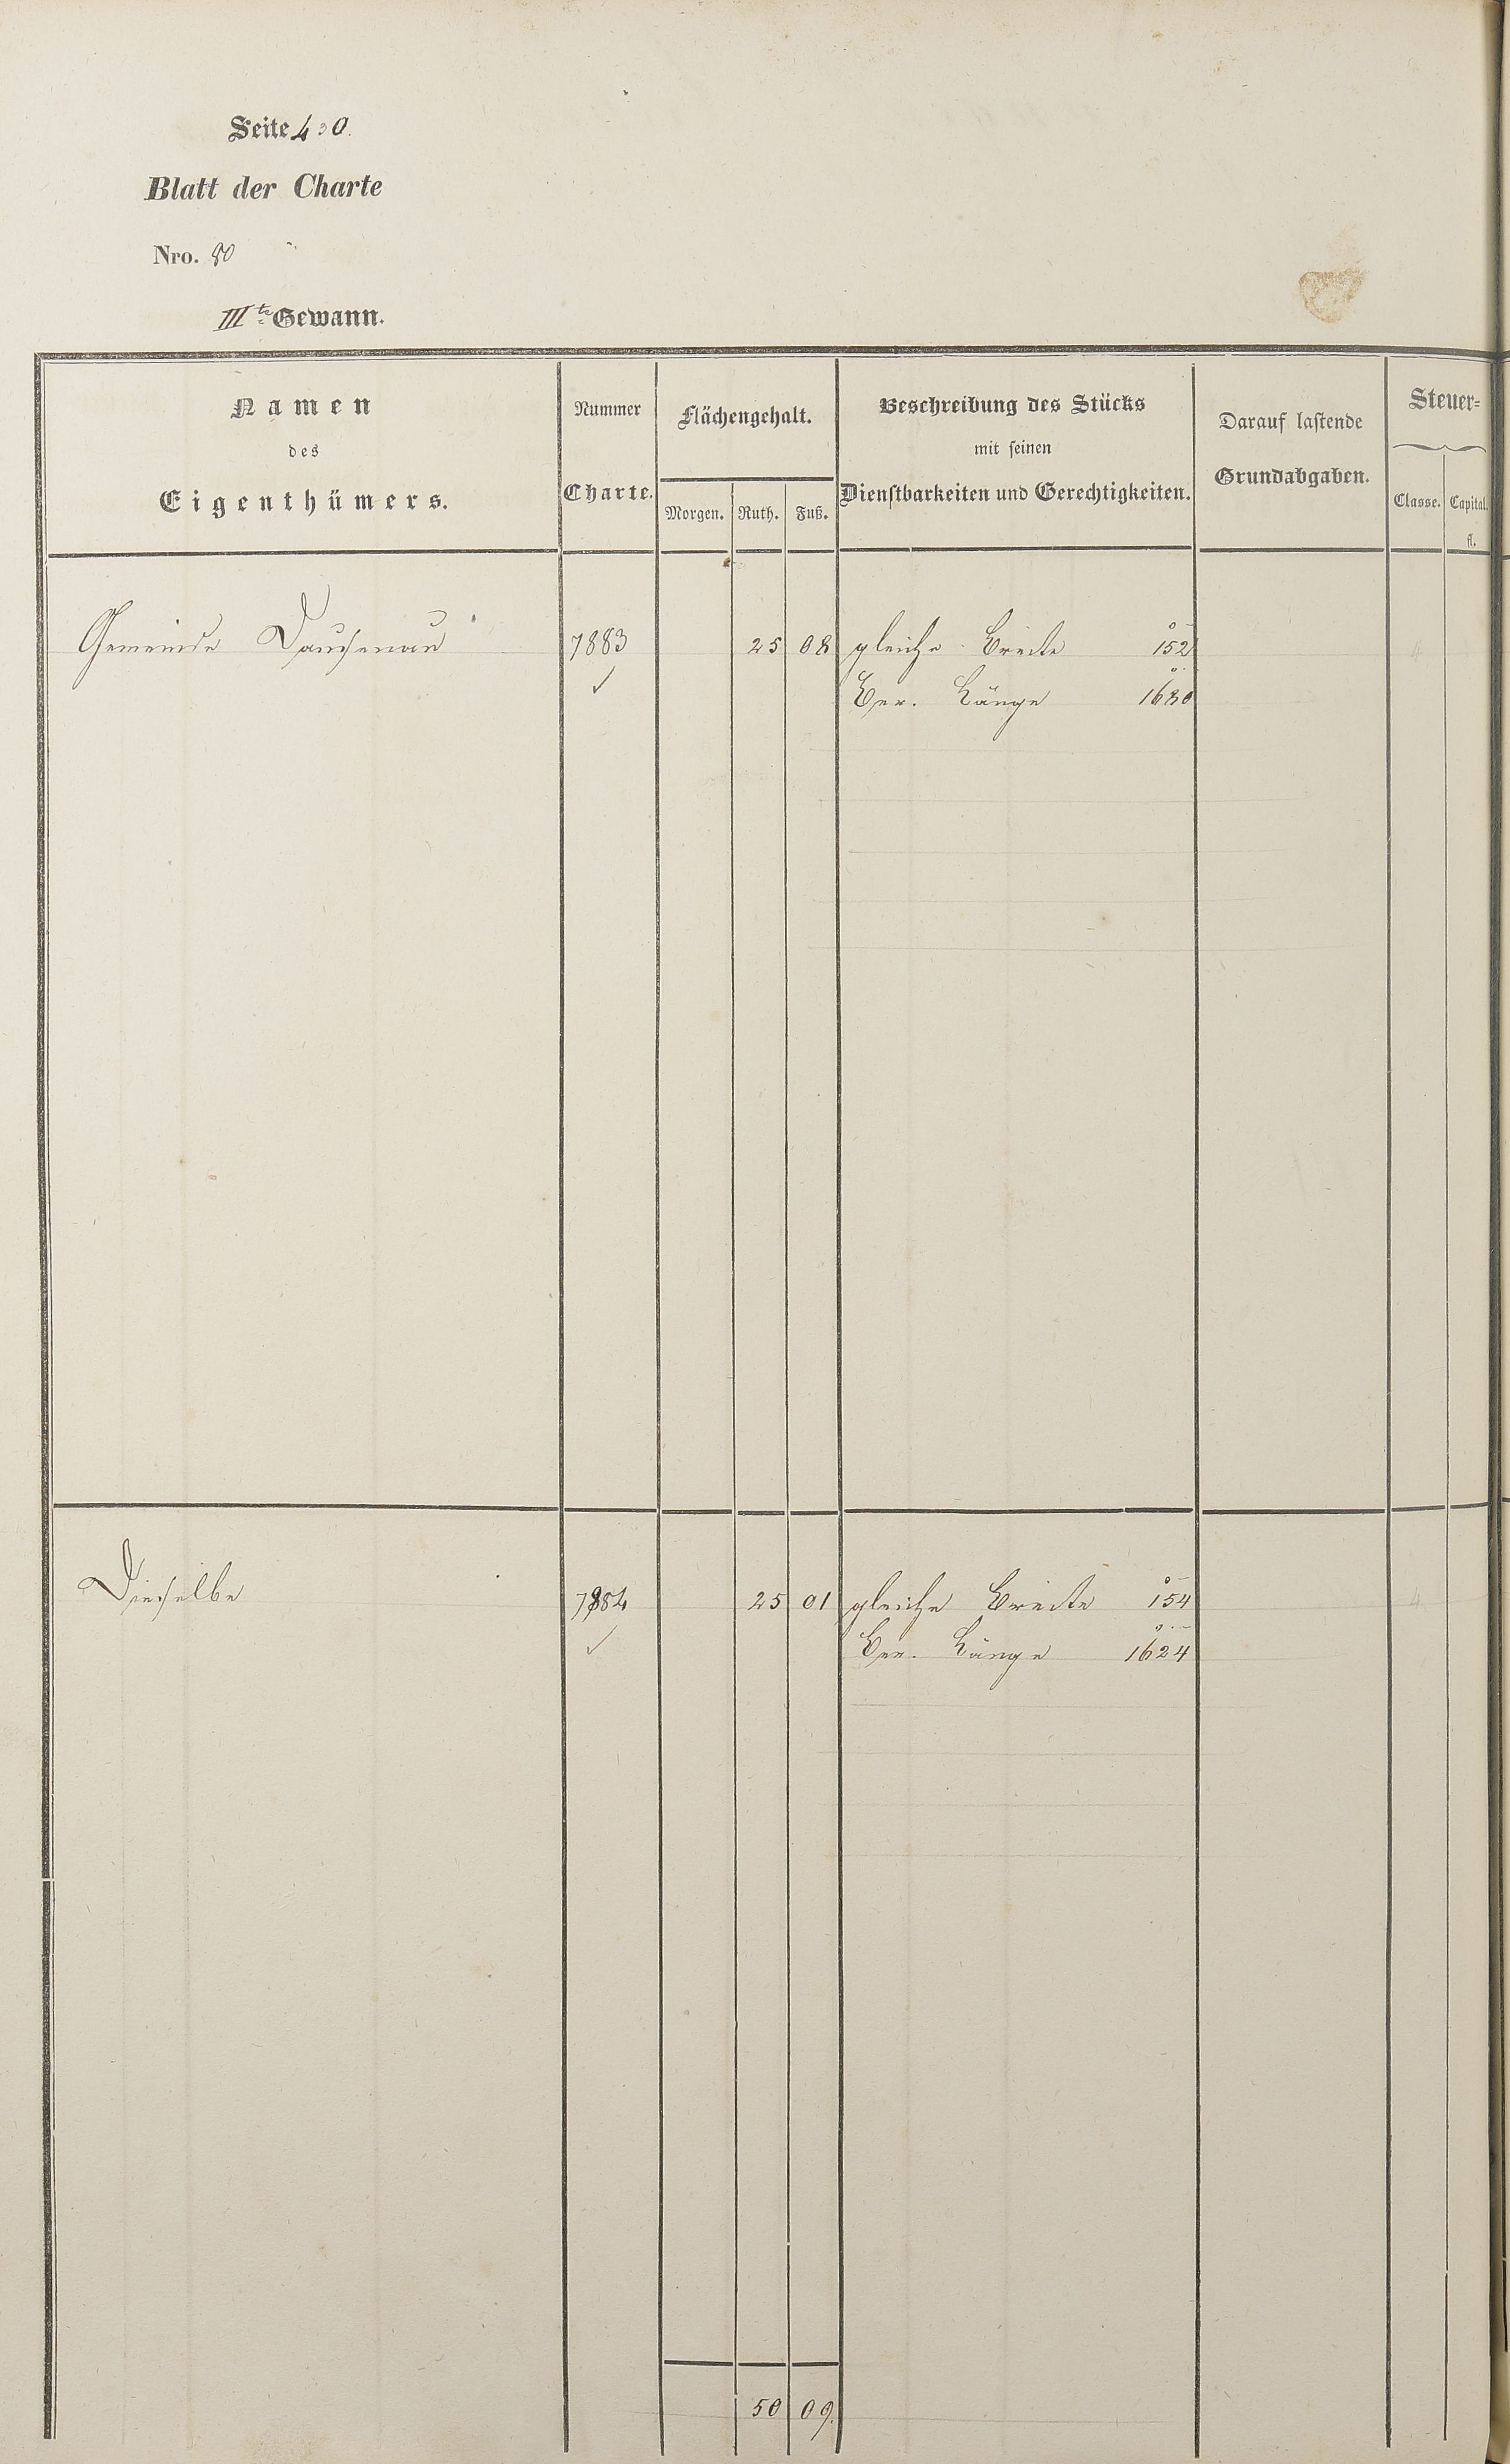 Seite 430.
Blatt der Charte
Nro. 80
IIIte Gewann.
Namen
des
Eigenthümers.
Nummer
Charte.
Flächengehalt.
Morgen. Ruth. Fuß.
Beschreibung des Stücks
mit seinen
Dienstbarkeiten und Gerechtigkeiten.
Darauf lastende
Grundabgaben.
Steuer=
Classe. Capital.
fl.
Gemeinde Dausenau 7883 25 08 gleiche Breite 152 4
Ber. Länge 1650
Dieselbe 7884 25 01 gleiche Breite 154 4
Ber. Länge 1624
50 09.